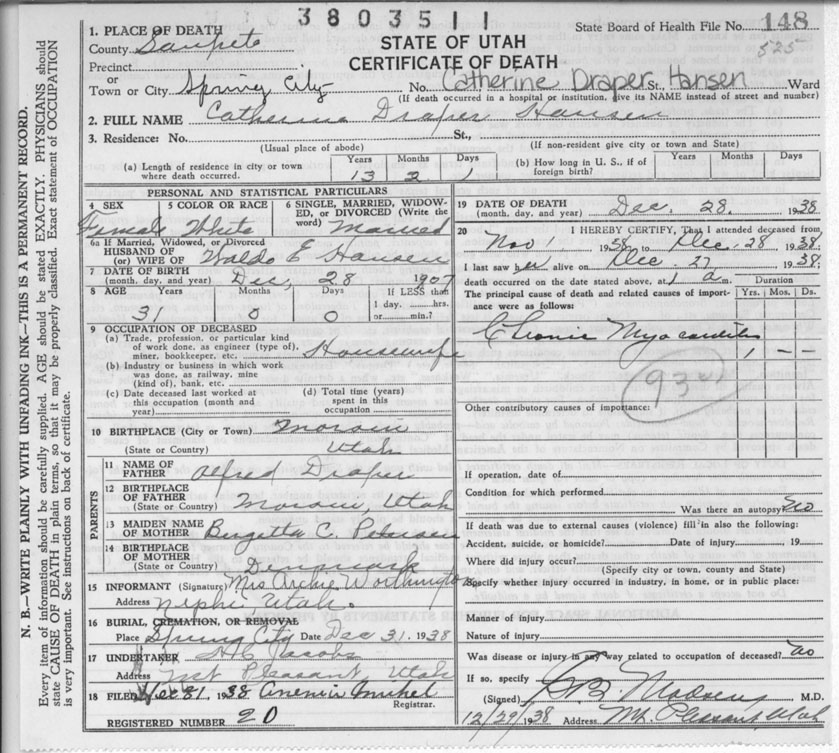 3803511
State Board of Health File No. 148
525
1. PLACE OF DEATH
County Sanpete
STATE OF UTAH
CERTIFICATE OF DEATH
Precinct
or
Town or City Spring City No. Catherine Draper Hansen St., Ward
(If death occurred in a hospital or institution, give its NAME instead of street and number)
2. FULL NAME Catherine Draper Hansen
3. Residence: No. St.,
(Usual place of abode) (If non-resident give city or town and State)
(a) Length of residence in city or town where death occurred. Years 13 Months 2 Days 1
(b) How long in U. S., if of foreign birth? Years Months Days
PERSONAL AND STATISTICAL PARTICULARS
4 SEX Female
5 COLOR OR RACE White
6 SINGLE, MARRIED, WIDOWED, OR DIVORCED (Write the word) Married
6a If Married, Widowed, or Divorced
HUSBAND OF
(or) WIFE OF Waldo E Hansen
7 DATE OF BIRTH
(month, day, and year) Dec, 28 1907
8 AGE Years 31 Months 0 Days 0 If LESS than 1 day, hrs. or min.?
9 OCCUPATION OF DECEASED
(a) Trade, profession, or particular kind
of work done, as engineer (type of),
miner, bookkeeper, etc. Housewife
(b) Industry or business in which work
was done, as railway, mine
(kind of), bank, etc.
(c) Date deceased last worked at
this occupation (month and
year)
(d) Total time (years)
spent in this
occupation
10 BIRTHPLACE (City or Town) Moroni
(State or Country) Utah
PARENTS
11 NAME OF
FATHER Alfred Draper
12 BIRTHPLACE
OF FATHER
(State or Country) Moroni, Utah
13 MAIDEN NAME
OF MOTHER C. Petersen
14 BIRTHPLACE
OF MOTHER
(State or Country) Denmark
15 INFORMANT (Signature) Mrs Archie Worthington
Address Nephi Utah.
16 BURIAL, CREMATION, OR REMOVAL
Place Spring City Date Dec 31. 1938
17 UNDERTAKER Jacobs
Address Mt Pleasant Utah
18 FILED Dec 31, 1938
Registrar.
REGISTERED NUMBER 20
19 DATE OF DEATH
(month, day, and year) Dec. 28. 1938
20 I HEREBY CERTIFY, That I attended deceased from
Nov 1 1938 to Dec, 28 1938;
I last saw her alive on Dec 27 1938;
death occurred on the date stated above, at 1 a m.
The principal cause of death and related causes of importance were as follows:
Duration
Yrs. Mos. Ds.
Chronic Myocarditis 1 - -
93
Other contributory causes of importance:
If operation, date of
Condition for which performed
Was there an autopsy No
If death was due to external causes (violence) fill in also the following:
Accident, suicide, or homicide? Date of injury, 19
Where did injury occur?
(Specify city or town, county and State)
Specify whether injury occurred in industry, in home, or in public place:
Manner of injury
Nature of injury
Was disease or injury in any way related to occupation of deceased? no
If so, specify
(Signed) Madsen M.D.
12/29/1938 Address Mt. Pleasant, Utah
N. B.—WRITE PLAINLY WITH UNFADING INK—THIS IS A PERMANENT RECORD.
Every item of information should be carefully supplied. AGE should be stated EXACTLY. PHYSICIANS should
state CAUSE OF DEATH in plain terms, so that it may be properly classified. Exact statement of OCCUPATION
is very important. See instructions on back of certificate.